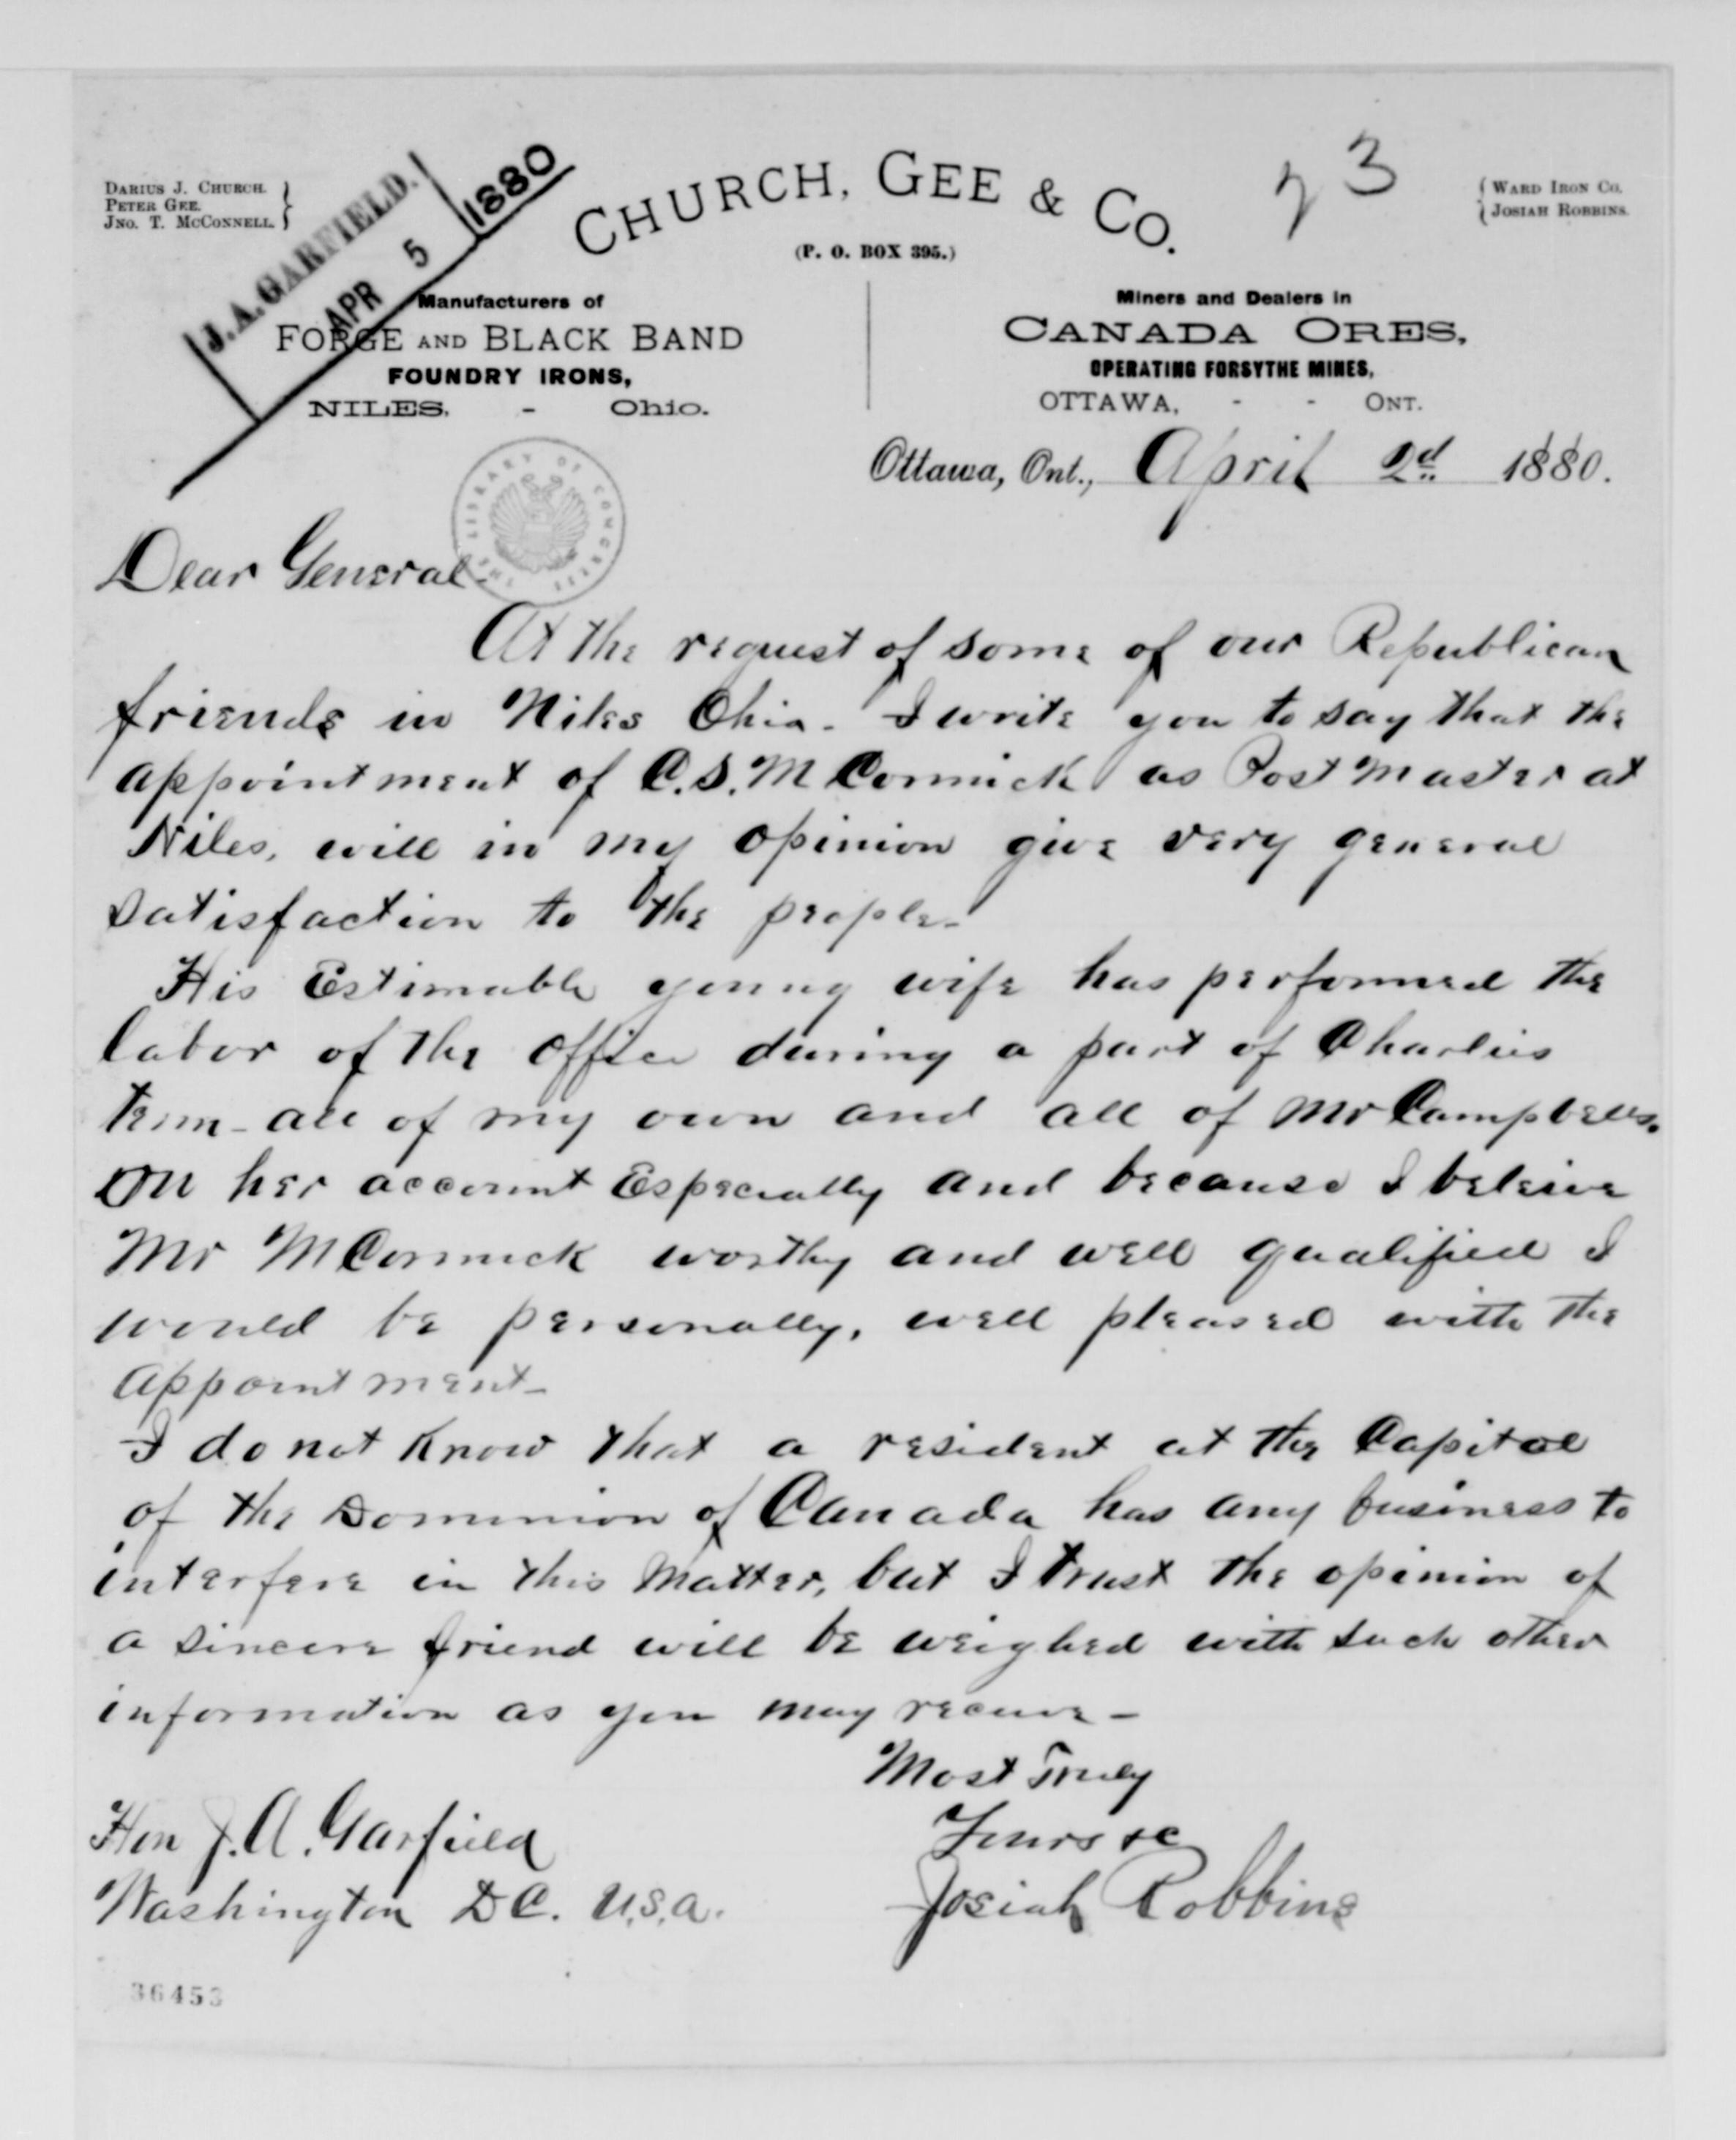 DARIUS J. CHURCH.
PETER GEE.
JNO. T. McCONNELL.
J.A. GARFIELD.
APR 5
1880
CHURCH, GEE & CO.
(P. O. BOX 395.)
23
WARD IRON CO.
JOSIAH ROBBINS.
Manufacturers of
FORGE AND BLACK BAND
FOUNDRY IRONS,
NILES, - Ohio.
Miners and Dealers in
CANADA ORES,
OPERATING FORSYTHE MINES,
OTTAWA, - - ONT.
Ottawa, Ont., April 2d 1880.
THE LIBRARY OF CONGRESS
Dear General-
At the request of some of our Republican
friends in Niles Ohio. I write you to say that the
appointment of C.S. McCormick as Post Master at
Niles, will in my opinion give very general
satisfaction to the people-
His Estimable young wife has performed the
labor of the office during a part of Charlies
term - all of my own and all of Mr Campbells.
On her account Especially and because I beleive
Mr McCormick worthy and well qualified I
would be personally, well pleased with the
appointment-
I do not know that a resident at the Capitol
of the Dominion of Canada has any business to
interfere in this matter, but I trust the opinion of
a sincere friend will be weighed with such other
information as you may receive-
Most Truly
Yours &c
Josiah Robbins
Hon J. A. Garfield
Washington D C. U.S.A.
36453